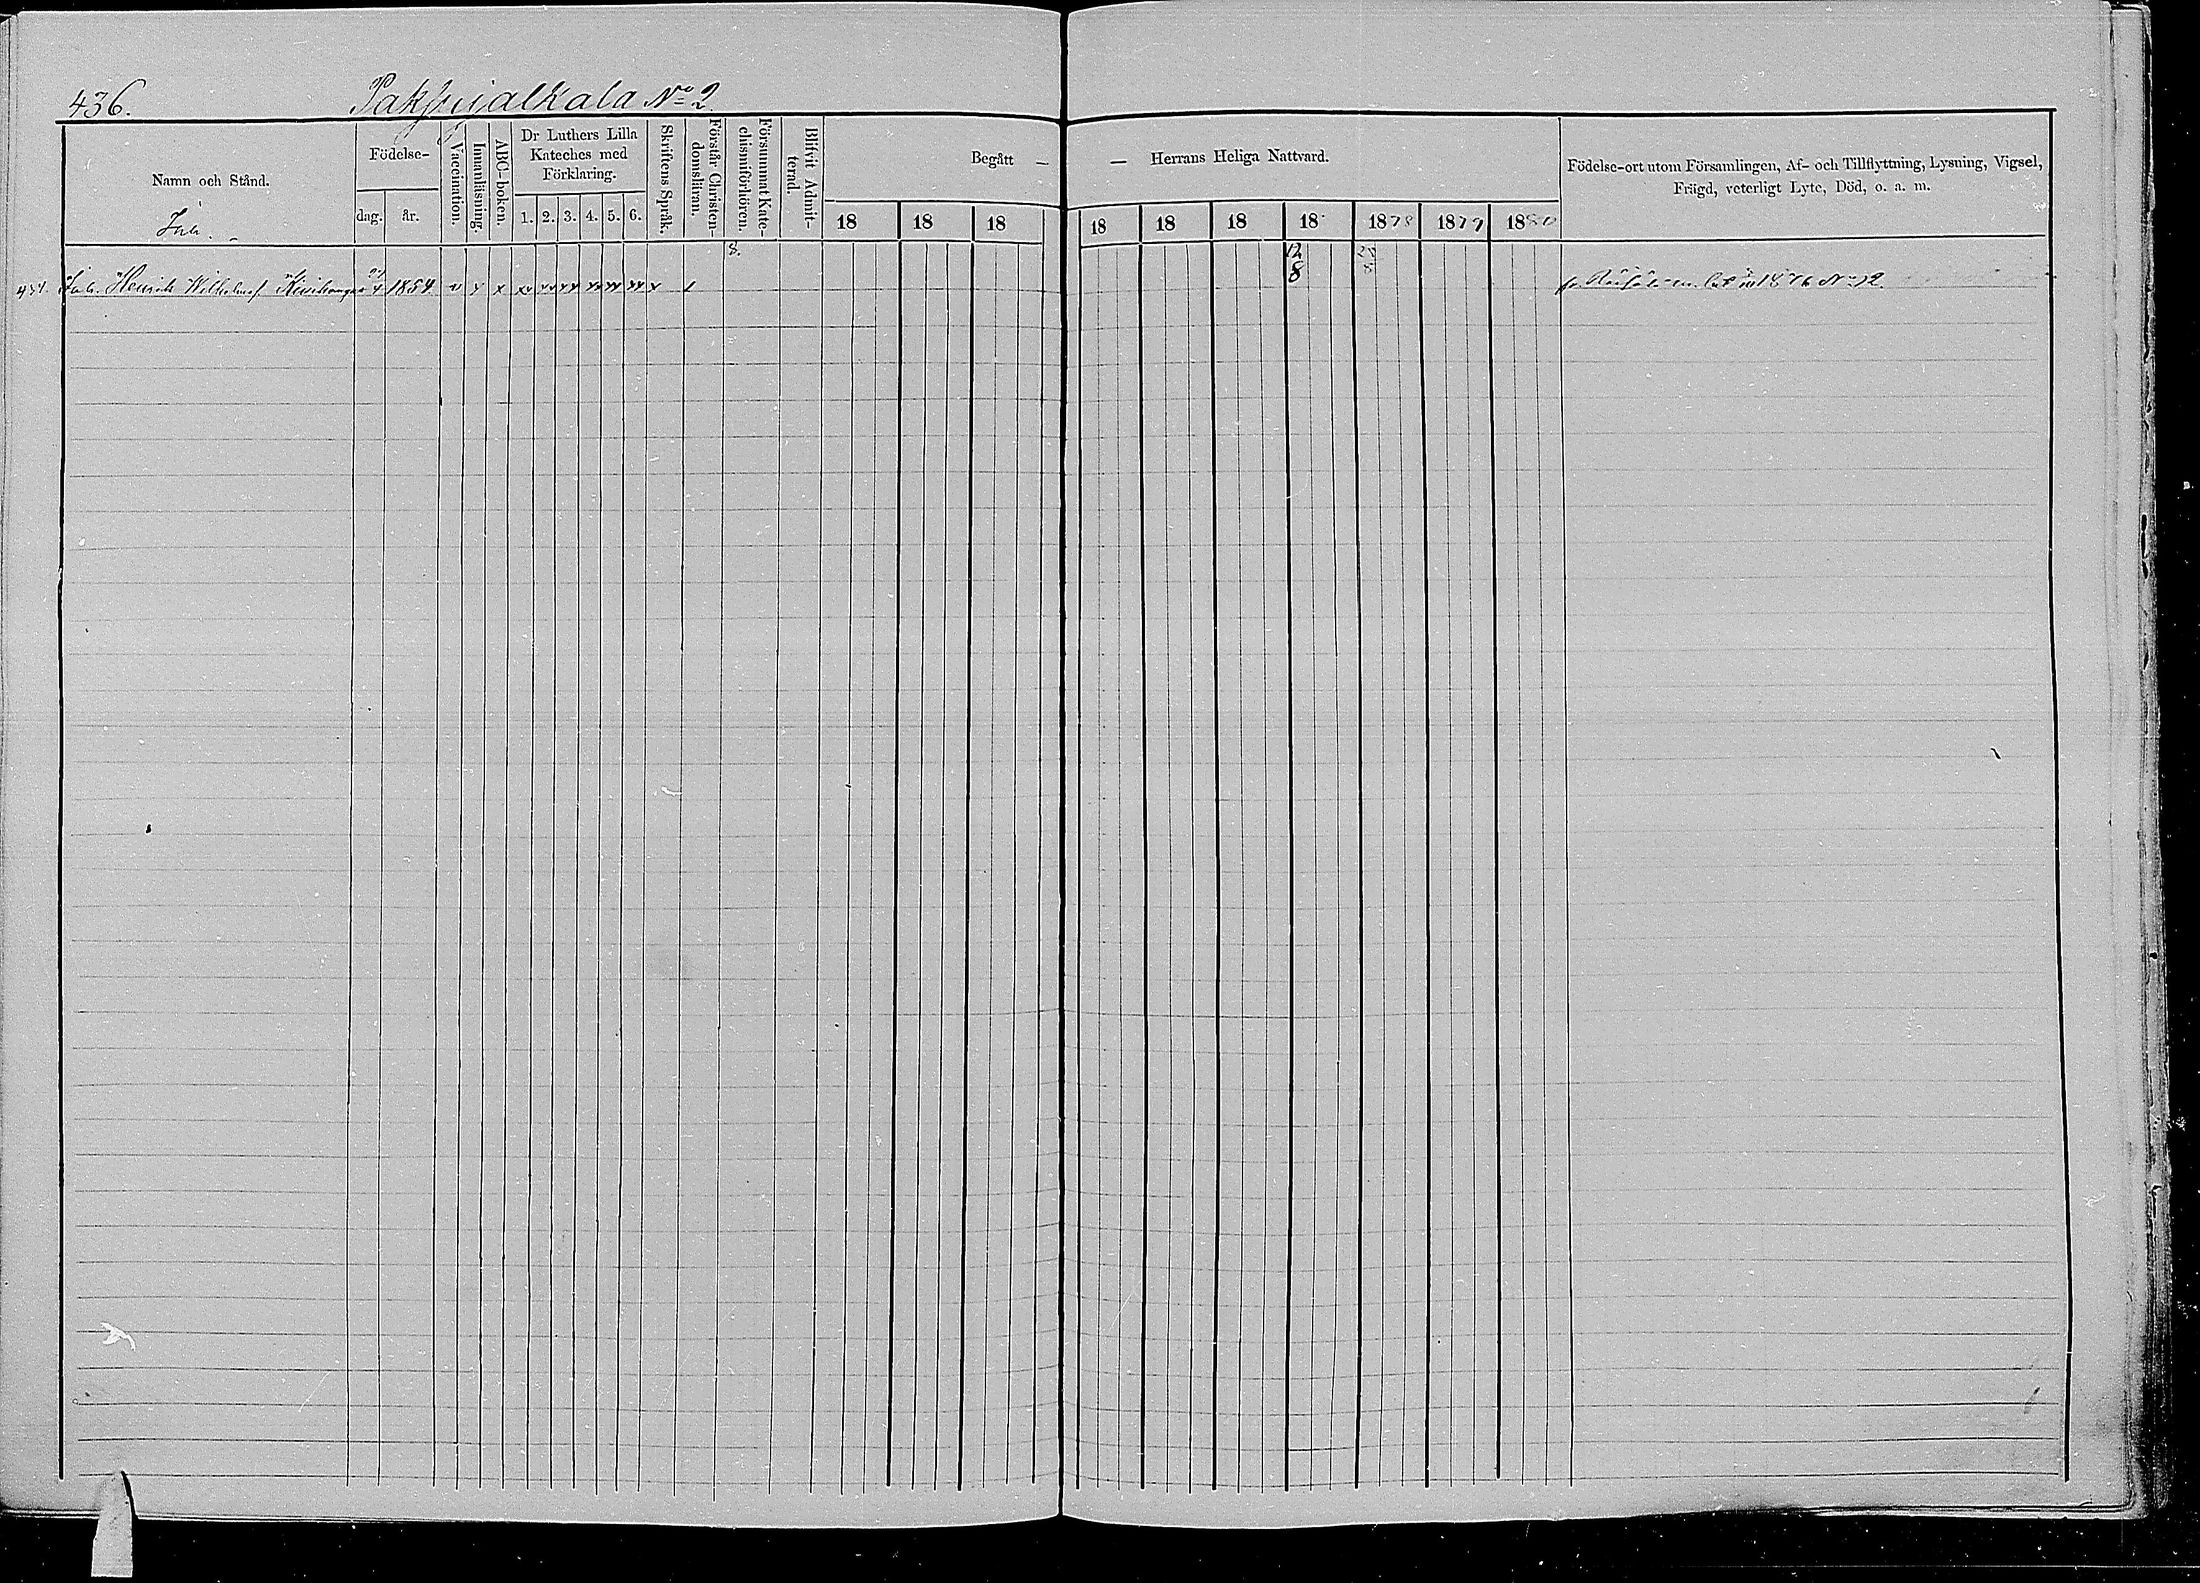 436. Pakkujalkala No 2.
Namn och Stånd.
Födelse-
dag. år.
Vaccination.
Innanläsning.
ABC-boken.
Dr Luthers Lilla
Kateches med
Förklaring.
1. 2. 3. 4. 5. 6.
Skriftens Språk.
Förstår Christen-
domsläran.
Försummat Kate-
chismiförhören.
Blifvit Admit-
terad.
Begått —
18 18 18
— Herrans Heliga Nattvard.
18 18 18 18 1878 1879 1880
Födelse-ort utom Församlingen, Af- och Tillflyttning, Lysning, Vigsel,
Frägd, veterligt Lyte, Död, o. a. m.
Inh.
8.
12
8
Henrik Wilhelmsf. 1854 v x x xx xx xx xx xx xx x
1876 No 12.